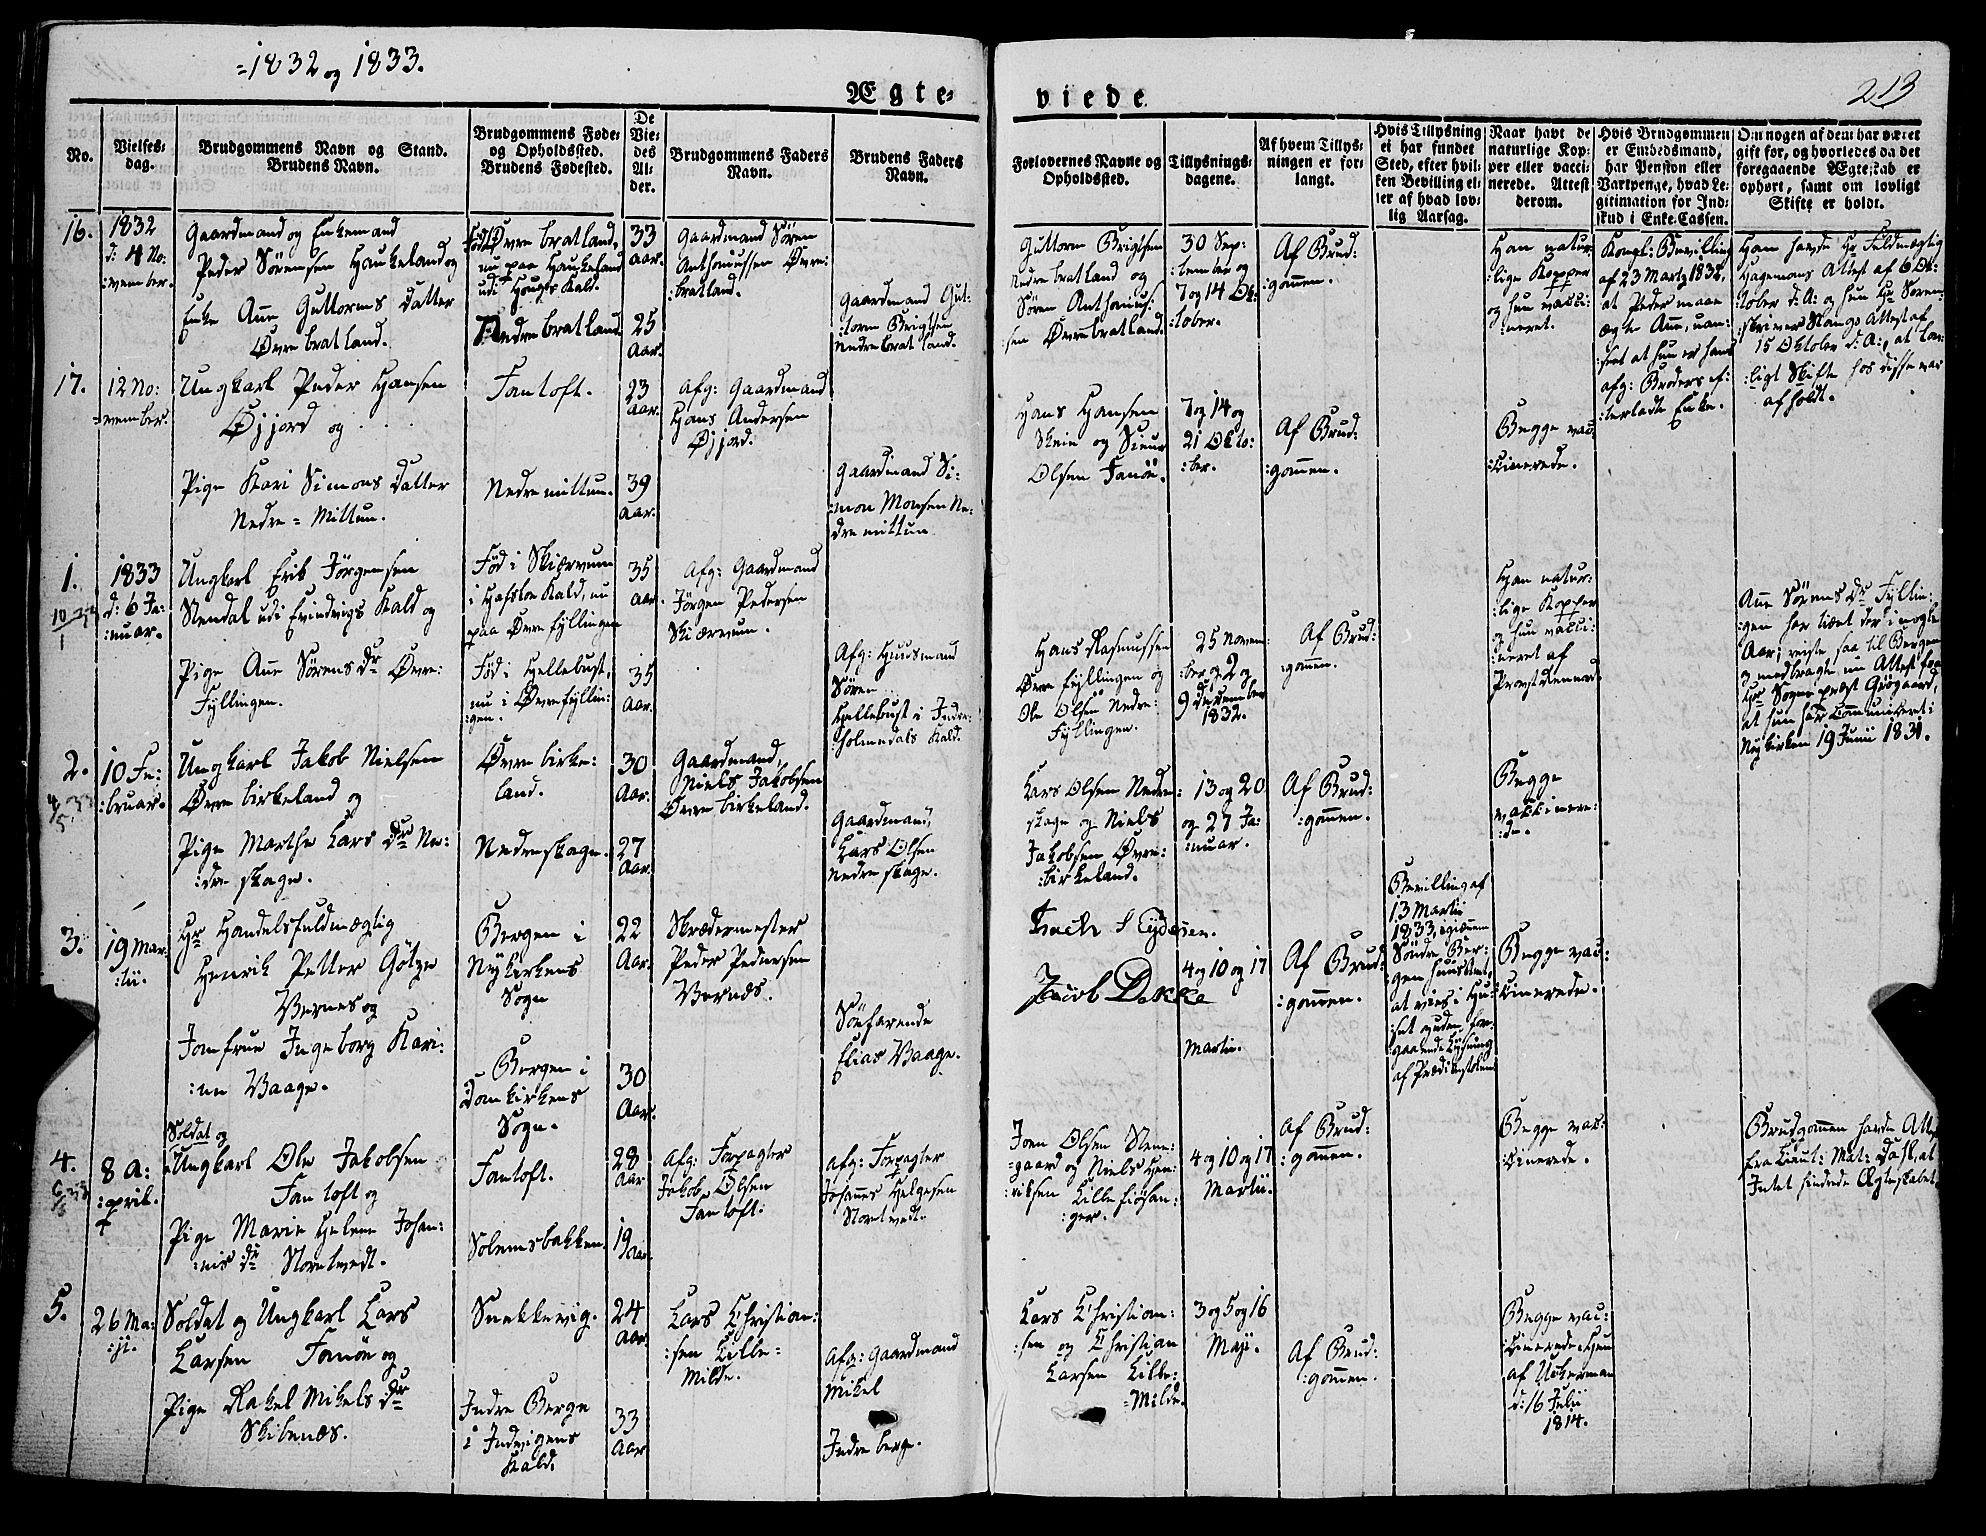 =1832 og 1833.
213
Ægte=
viede
No.
Vielses=
dag.
Brudgommens Navn og Stand.
Brudens Navn.
Brudgommens Føde=
og Opholdssted.
Brudens Fødested.
De
Vie=
des
Al=
der.
Brudgommens Faders
Navn.
Brudens Faders
Navn.
Forlovernes Navne og
Opholdssted.
Tillysnings=
dagene.
Af hvem Tillys=
ningen er for=
langt.
Hvis Tillysning
ei har fundet
Sted, efter hvil=
ken Bevilling el=
ler af hvad lov=
lig Aarsag.
Naar havt de
naturlige Kop=
per eller vacci=
nerede. Attest
derom.
Hvis Brudgommen
er Embedsmand,
har Pension eller
Vartpenge, hvad Le=
gitimation for Ind=
skud i Enke-Cassen.
Om nogen af dem har været
gift før, og hvorledes da det
foregaaende Ægteskab er
ophørt, samt om lovligt
Skifte er holdt.
16.
1832
d: 4 No:
:vember.
Gaardmand og Enkemand
Peder Sørensen Haukeland og
Enke Ane Guttorms Datter
Øvre bratland.
Født Øvre bratland,
nu paa Haukeland
udi Houges Kald.
Nedre bratland
33
Aar.
25
Aar.
Gaardmand Sören
Anthoniussen Øvre:
:bratland.
Gaardmand Gut:
:torm Brigtsen
Nedre bratland.
Guttorm Brigtsen
Nedre bratland og
Sören Anthonius:
:sen Øvre bratland.
30 Sep:
:tember og
7 og 14 Ok:
:tober.
Af Brud:
:gommen.
Han natur:
:lige Kopper
og hun vacci:
:neret.
Kongl: Bevilling
af 23 Marty 1832,
at Peder maae
ægte Ane, uan:
:seet at hun er hans
afg: Broders ef:
:terladte Enke.
Han havde Hr Fuldmægtig
Hagemans Attest af 6 Ok:
:tober d: A: og hun Hr Soren:
:skriver Stangs Attest af
15 Oktober d: A:, at lov:
:ligt Skifte hos disse var
afholdt.
17.
12 No:
:vember.
Ungkarl Peder Hansen
Øjjord og
Pige Kari Simons Datter
Nedre = Mittun.
Fantoft.
Nedre mittun.
23
Aar.
39
Aar.
Afg: Gaardmand
Hans Andersen
Øjjord.
Gaardmand Si:
:mon Monsen Ne:
dre mittun
Hans Hansen
Skeie og Sieur
Olsen Fanöe.
7 og 14 og
21 Okto:
:ber.
Af Brud:
:gommen.
Begge vac:
:cinerede.
1.
1833
d: 6 Ja:
:nuar.
Ungkarl Erik Jörgensen
Stendal udi Evindvigs Kald og
Pige Ane Sörens Dr Øvre:
Fyllingen.
Fød i Skiærvum
i Hafsloe Kald, nu
paa Øvre fyllingen
Fød i Hellebust,
nu i Øvre fyllin:
:gen.
35
Aar.
35
Aar.
Afg: Gaardmand
Jörgen Pedersen
Skiærvum.
Afg: Huusmand
Sören
Hellebust i Indre:
:holmedals Kald.
Hans Rasmussen
Øvre fyllingen og
Ole Olsen Nedre:
Fyllingen.
25 Novem:
ber, og 2 og
9 December
1832.
Af Brud:
:gommen.
Han natur:
:lige Kopper
og hun vacci:
:neret af
Provst Rennord.
Ane Sörens Dr Fyllin:
:gen har tient der i nogle
Aar, reiste saa til Bergen
og medbragte nu Attest fra
Hr Sognepræst Grögaard,
at hun har Communiceret i
Nykirken 19 Junii 1831.
2.
10 Fe:
:bruar.
Ungkarl Jakob Nielsen
Øvre birkeland og
Pige Marthe Lars Dr Ne:
:dre skage.
Øvre birke:
land.
Nedre skage.
30
Aar.
27
Aar.
Gaardmand,
Niels Jakobsen
Øvre birkeland.
Gaardmand,
Lars Olsen
Nedre skage.
Lars Olsen Nedre:
skage og Niels
Jakobsen Øvre:
:birkeland.
13 og 20
og 27 Ja:
:nuar.
Af Brud:
:gommen.
Begge
vaccinere:
:de.
3.
19 Mar:
:tii.
Hr Handelsfuldmægtig
Henrik Petter Götze
Vernes og
Jomfrue Ingeborg Kari:
:ne Vaage.
Bergen i
Nykirkens
Sogn
Bergen i
Domkirkens
Sogn.
22
Aar.
30
Aar.
Skrædermester
Peder Pedersen
Vernes.
Söefarende
Elias Vaage.
Jacob Dekke
4 og 10 og 17
Martii.
Af Brud:
:gommen.
Bevilling af
13 Martii
1833,
Söndre Ber:
gen huus
at vies i Hu:
set og uden for:
:gaaende Lysning
af Prædikestolen.
Begge vac:
:cinerede.
4.
8 A:
:pril.
Soldat og
Ungkarl Ole Jakobsen
Fantoft og
Pige Marie Helene Johan:
:nis Dr Storetvedt.
Fantoft.
Solemsbakken.
28
Aar
19
Aar.
Afg: Forpagter
Jakob Olsen
Fantoft.
Afg: Forpagter
Johannes Helgesen
Storetvedt.
Joen Olsen Steen:
=gaard og Niels Hen:
:riksen Lille fiösan:
:ger.
4 og 10 og 17
Martii.
Af Brud:
:gommen.
Begge vac:
:cinerede.
Brudgommen havde Attest
fra Lieut: Mat: Dahl, at
Intet hindrede Ægteskabet.
5.
26 Ma:
:ji.
Soldat og Ungkarl Lars
Larsen Fanöe og
Pige Rakel Mikels Dr
Skibenæs.
Snekkevig.
Indre Berge
i Indvigens
Kald.
24
Aar.
33
Aar.
Lars Christian:
:sen Lille=
Milde.
Afg: Gaardmand
Mikel
Indre berge.
Lars Christian:
:sen og Christian
Larsen Lille:
=Milde.
3 og 5 og 16
Maji.
Af Brud:
:gommen.
Begge vac:
:cinerede. Hun
af Uckerman
d: 16 Julii
1814.